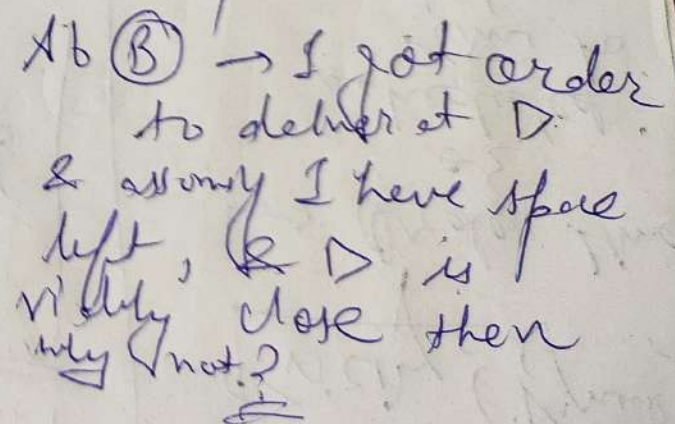 At (B) → I got order
to deliver at D.
& assuming I have space
left, & D is
visibly close then
why not?